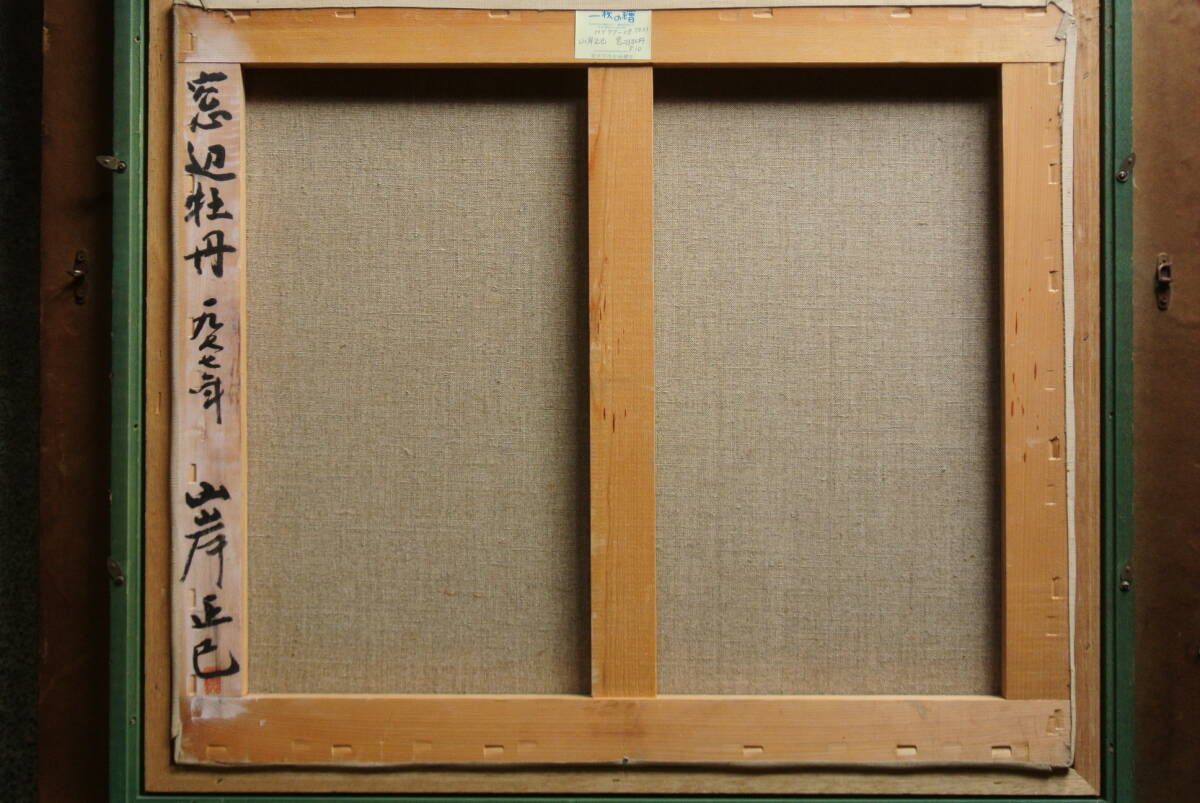 一枚の繪
山岸正巳
F10
窓辺牡丹 一九八七年 山岸正巳